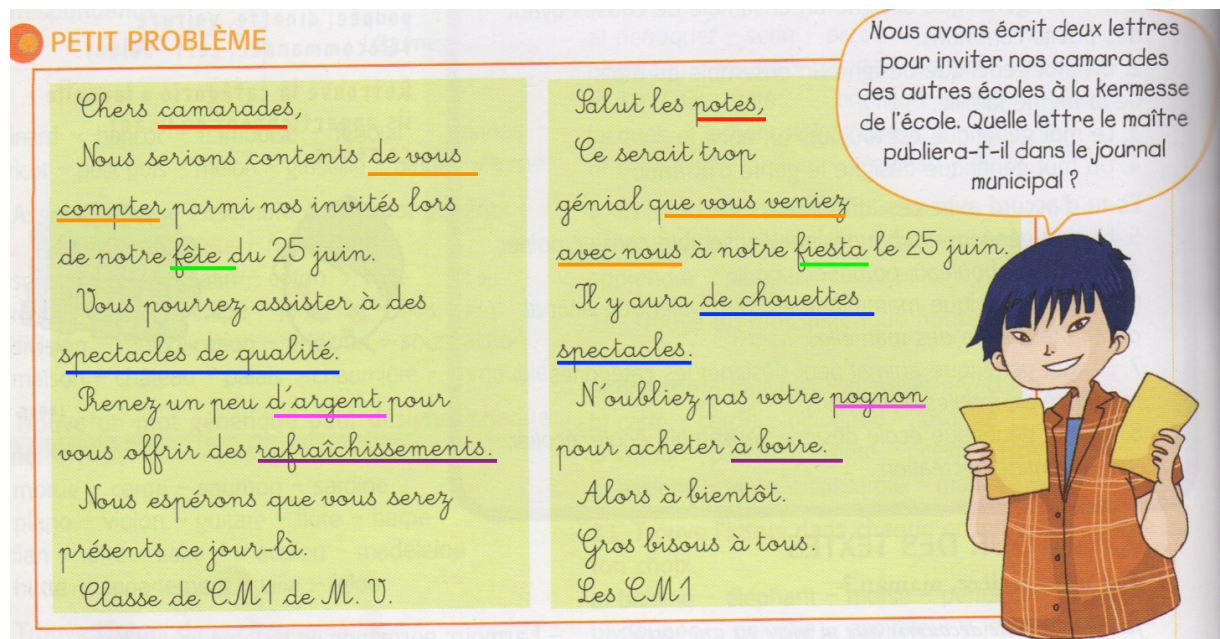 PETIT PROBLÈME
Chers camarades,
Nous serions contents de vous
compter parmi nos invités lors
de notre fête du 25 juin.
Vous pourrez assister à des
spectacles de qualité.
Prenez un peu d'argent pour
vous offrir des rafraîchissements.
Nous espérons que vous serez
présents ce jour-là.
Classe de CM1 de M. V.
Salut les potes,
Ce serait trop
génial que vous veniez
avec nous à notre fiesta le 25 juin.
Il y aura de chouettes
spectacles.
N'oubliez pas votre pognon
pour acheter à boire.
Alors à bientôt.
Gros bisous à tous.
Les CM1
Nous avons écrit deux lettres
pour inviter nos camarades
des autres écoles à la kermesse
de l'école. Quelle lettre le maître
publiera-t-il dans le journal
municipal ?